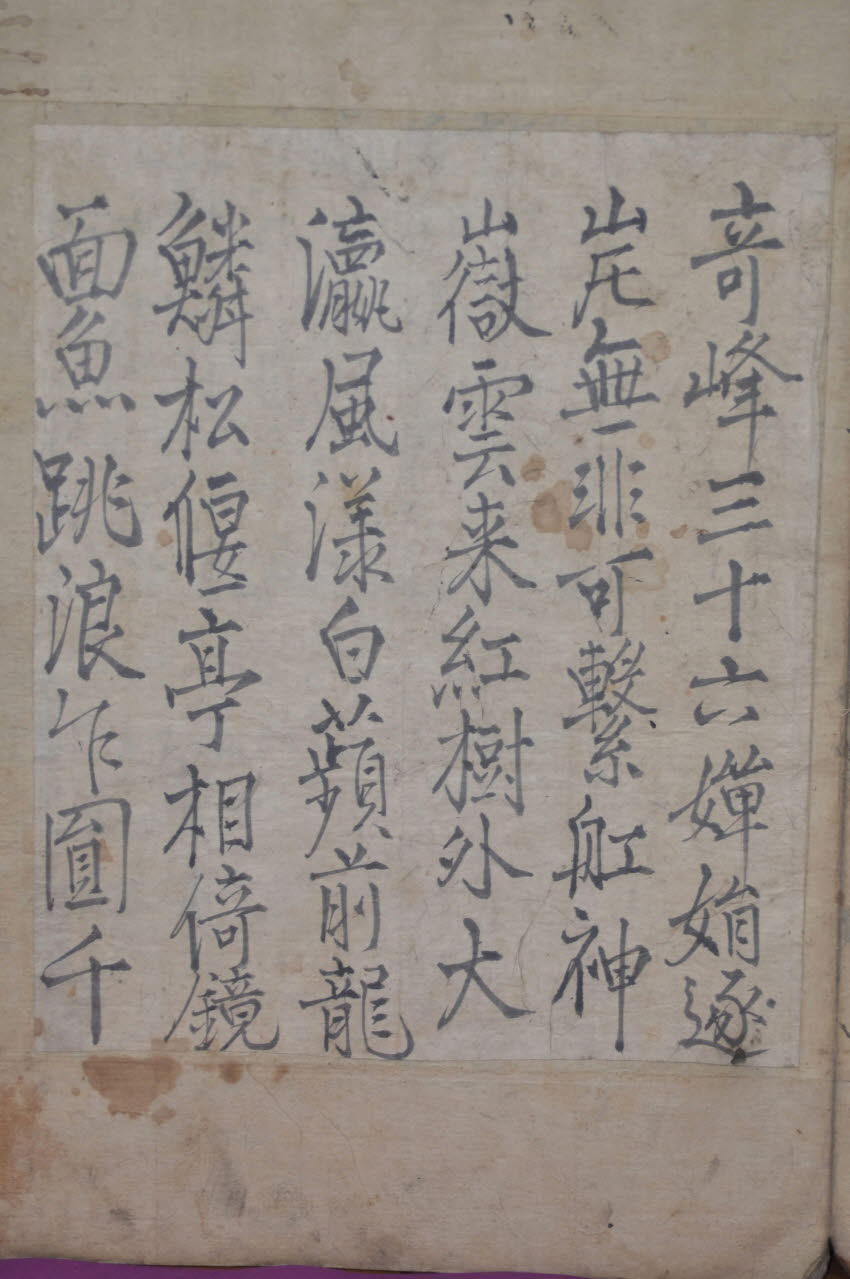 奇峰三十六嬋娟逐
岸無非可繫舡神
嶽雲来紅樹外大
瀛風漾白蘋前龍
鱗松偃亭相倚鏡
面魚跳浪乍圓千